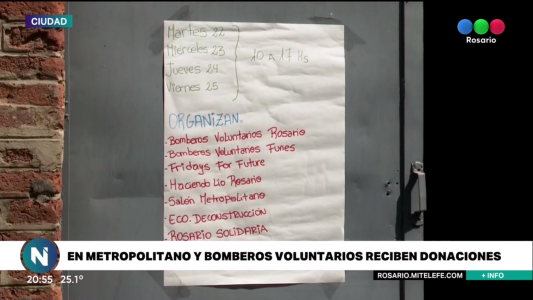 CIUDAD
Rosario
Martes 22
Miercoles 23
Jueves 24
Viernes 25
10 A 17 Hs
ORGANIZAN.
-Bomberos Voluntarios Rosario
-Bomberos Voluntarios Funes
-Fridays For Future
-Haciendo Lío Rosario
-Salón Metropolitano
-ECO. DECONSTRUCCIÓN
-ROSARIO SOLIDARIA
N
EN METROPOLITANO Y BOMBEROS VOLUNTARIOS RECIBEN DONACIONES
20:55 25.1°
ROSARIO.MITELEFE.COM + INFO